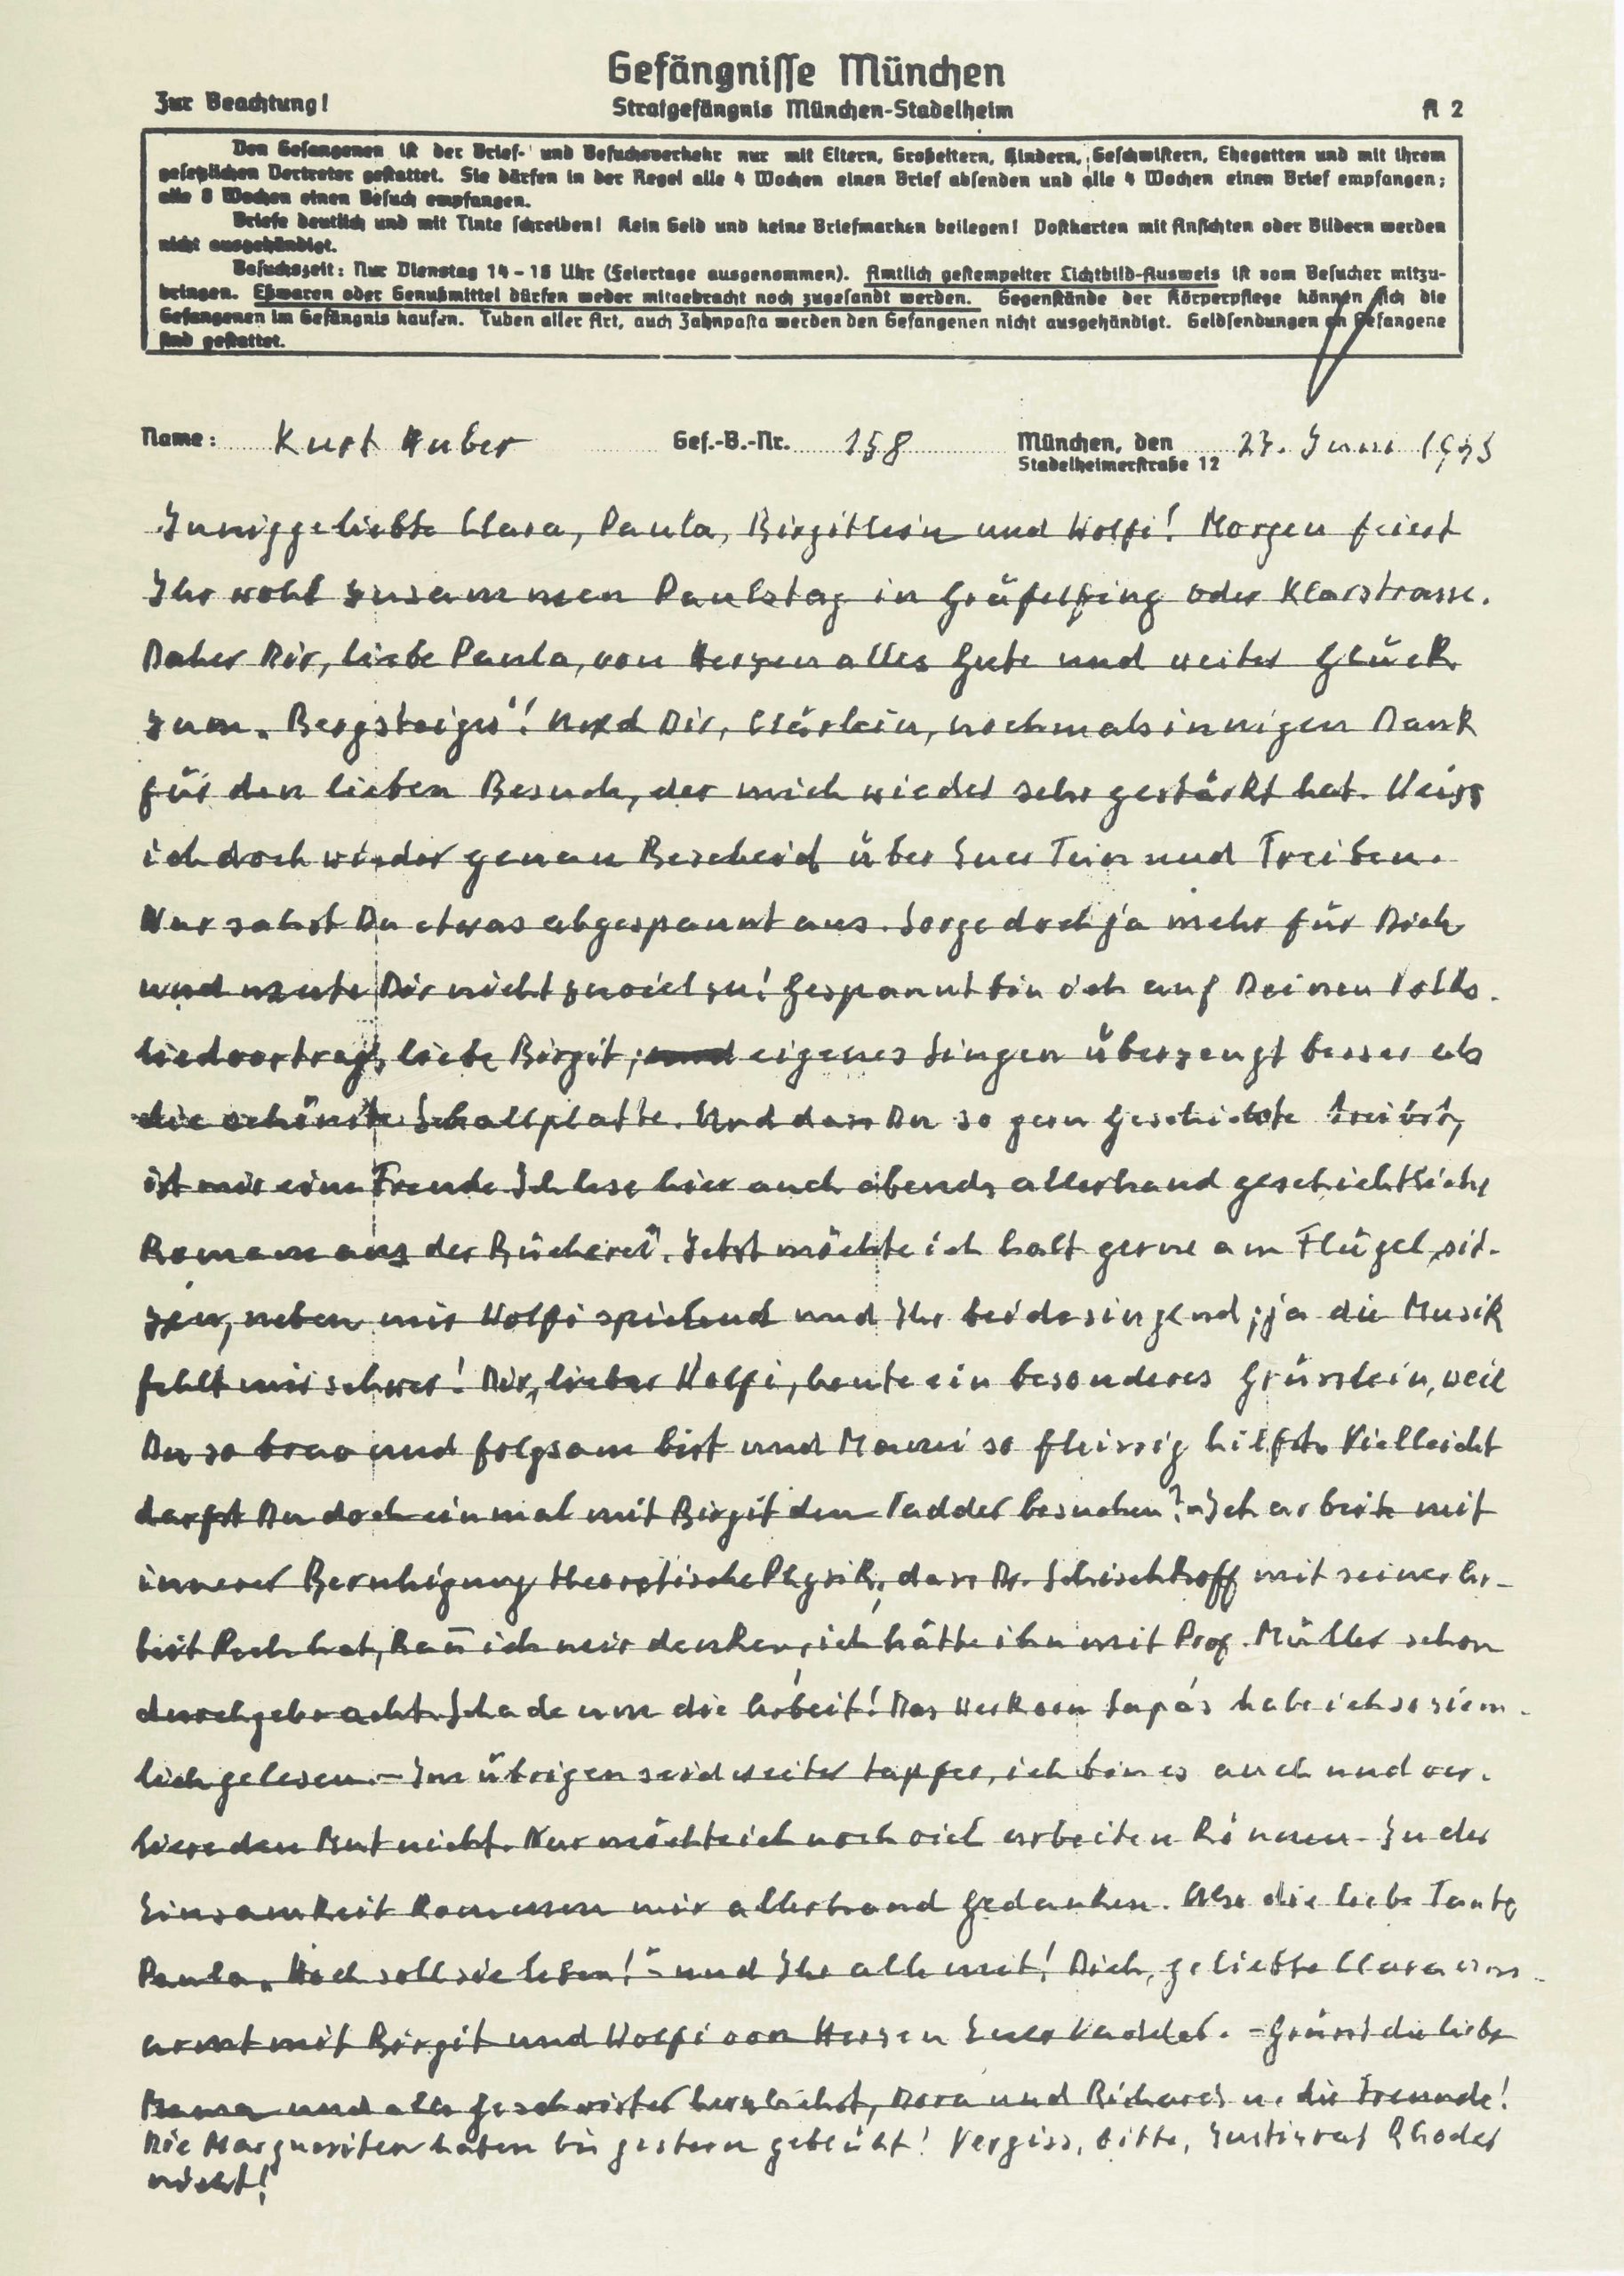 Gefängnisse München
Zur Beachtung!
Strafgefängnis München-Stadelheim
A 2
Den Gefangenen ist der Brief- und Besuchsverkehr nur mit Eltern, Großeltern, Kindern, Geschwistern, Ehegatten und mit ihrem
gesetzlichen Vertreter gestattet. Sie dürfen in der Regel alle 4 Wochen einen Brief absenden und alle 4 Wochen einen Brief empfangen;
alle 8 Wochen einen Besuch empfangen.
Briefe deutlich und mit Tinte schreiben! Kein Geld und keine Briefmarken beilegen! Postkarten mit Ansichten oder Bildern werden
nicht ausgehändigt.
Besuchszeit: Nur Dienstag 14-18 Uhr (Feiertage ausgenommen). Amtlich gestempelter Lichtbild-Ausweis ist vom Besucher mitzu-
bringen. Eßwaren oder Genußmittel dürfen weder mitgebracht noch zugesandt werden. Gegenstände der Körperpflege können sich die
Gefangenen im Gefängnis kaufen. Tuben aller Art, auch Zahnpasta werden den Gefangenen nicht ausgehändigt. Geldsendungen an Gefangene
sind gestattet.
Name: Kurt Huber Gef.-B.-Nr. 158 München, den 27. Juni 1943
Stadelheimerstraße 12
Inniggeliebte Clara, Paula, Birgitlein und Wolfi! Morgen feiert
Ihr wohl zusammen Paulstag in Gräfelfing oder Klarstrasse.
Daher Dir, liebe Paula, von Herzen alles Gute und weiter Glück
zum „Bergsteigen"! Und Dir, Clärlein, nochmals innigen Dank
für den lieben Besuch, der mich wieder sehr gestärkt hat. Weiss
ich doch wieder genau Bescheid über Euer Tun und Treiben.
Nur sahst Du etwas abgespannt aus. Sorge doch ja mehr für Dich
und mute Dir nicht zuviel zu! Gespannt bin ich auf Deinen Volks-
liedvortrag, liebe Birgit; eigenes Singen überzeugt besser als
die schönste Schallplatte. Und dass Du so gern Geschichte treibst,
ist mir eine Freude. Ich lese hier auch abends allerhand geschichtliche
Romane aus der Bücherei. Jetzt möchte ich halt gerne am Flügel sit-
zen, neben mir Wolfi spielend und Ihr beide singend; ja die Musik
fehlt mir schwer! Dir, lieber Wolfi, heute ein besonderes Grüsslein, weil
Du so brav und folgsam bist und Mami so fleissig hilfst. Vielleicht
darfst Du doch einmal mit Birgit den Vadder besuchen? – Ich arbeite mit
innerer Beruhigung theoretische Physik, dass Dr. Schischkoff mit seiner Ar-
beit Pech hat, kan̄ ich mir denken, ich hätte ihn mit Prof. Müller schon
durchgebracht. Schade um die Arbeit! Das Werk von hab ich so ziem-
lich gelesen. – Im übrigen seid weiter tapfer, ich bin es auch und ver-
liere den Mut nicht. Nur möchte ich noch viel arbeiten können – In der
Einsamkeit kommen mir allerhand Gedanken. Also die liebe Tante
Paula „Hoch soll sie leben!" – und Ihr alle mit! Dich, geliebte Clara um-
armt mit Birgit und Wolfi von Herzen Euer Vadder. – Grüsst die liebe
Mama und alle Geschwister herzlichst, Dora und Richard u. die Freunde!
Die Margueriten haben bis gestern geblüht! Vergiss, bitte, Justizrat Rhoder
nicht!